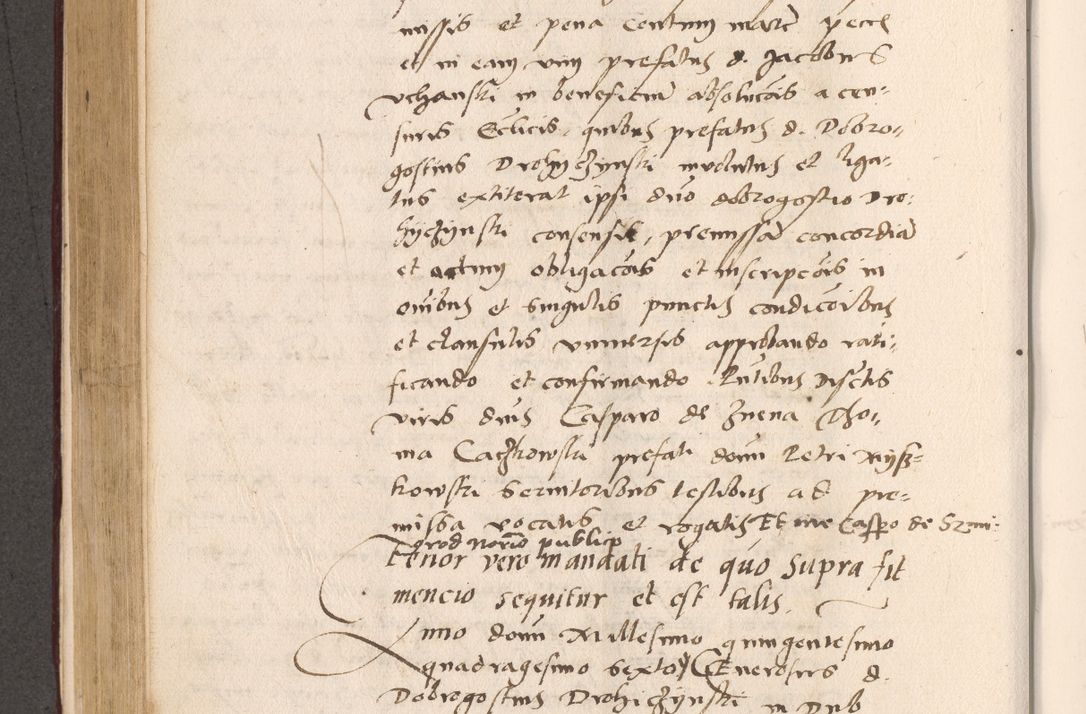 missis et pena Centum marc pecc
et in eam vim prefatus d. Jacobus
Vchanski in beneficium absolucois a cen-
suris Ecclicis, quibus prefatus d. Dobro-
gostius Drohyczynski involutus et liga-
tus extiterat ipsi duo dobrogostio Dro-
hyczynski consensit, premissam concordiam
et actum obligacois et inscripcois in
omibus et singulis punctis condicoibus
et clausulis vniuersis approbando rati-
ficando et confirmando. Pntibus Discretis
viris dnis Casparo de Znena Tho-
ma Caczkowski prefati domi Petri Mysz-
kowski Seruitoribus testibus ad pre-
missa vocatis et rogatis Et me Caspro de Szmi-
grod Notrio publico
Tenor vero mandati de quo supra fit
mencio sequitur et est talis.
Anno domi Millesimo quingentesimo
quadragesimo sexto Generosus d.
Dobrogostius Drohiczynski in Dub